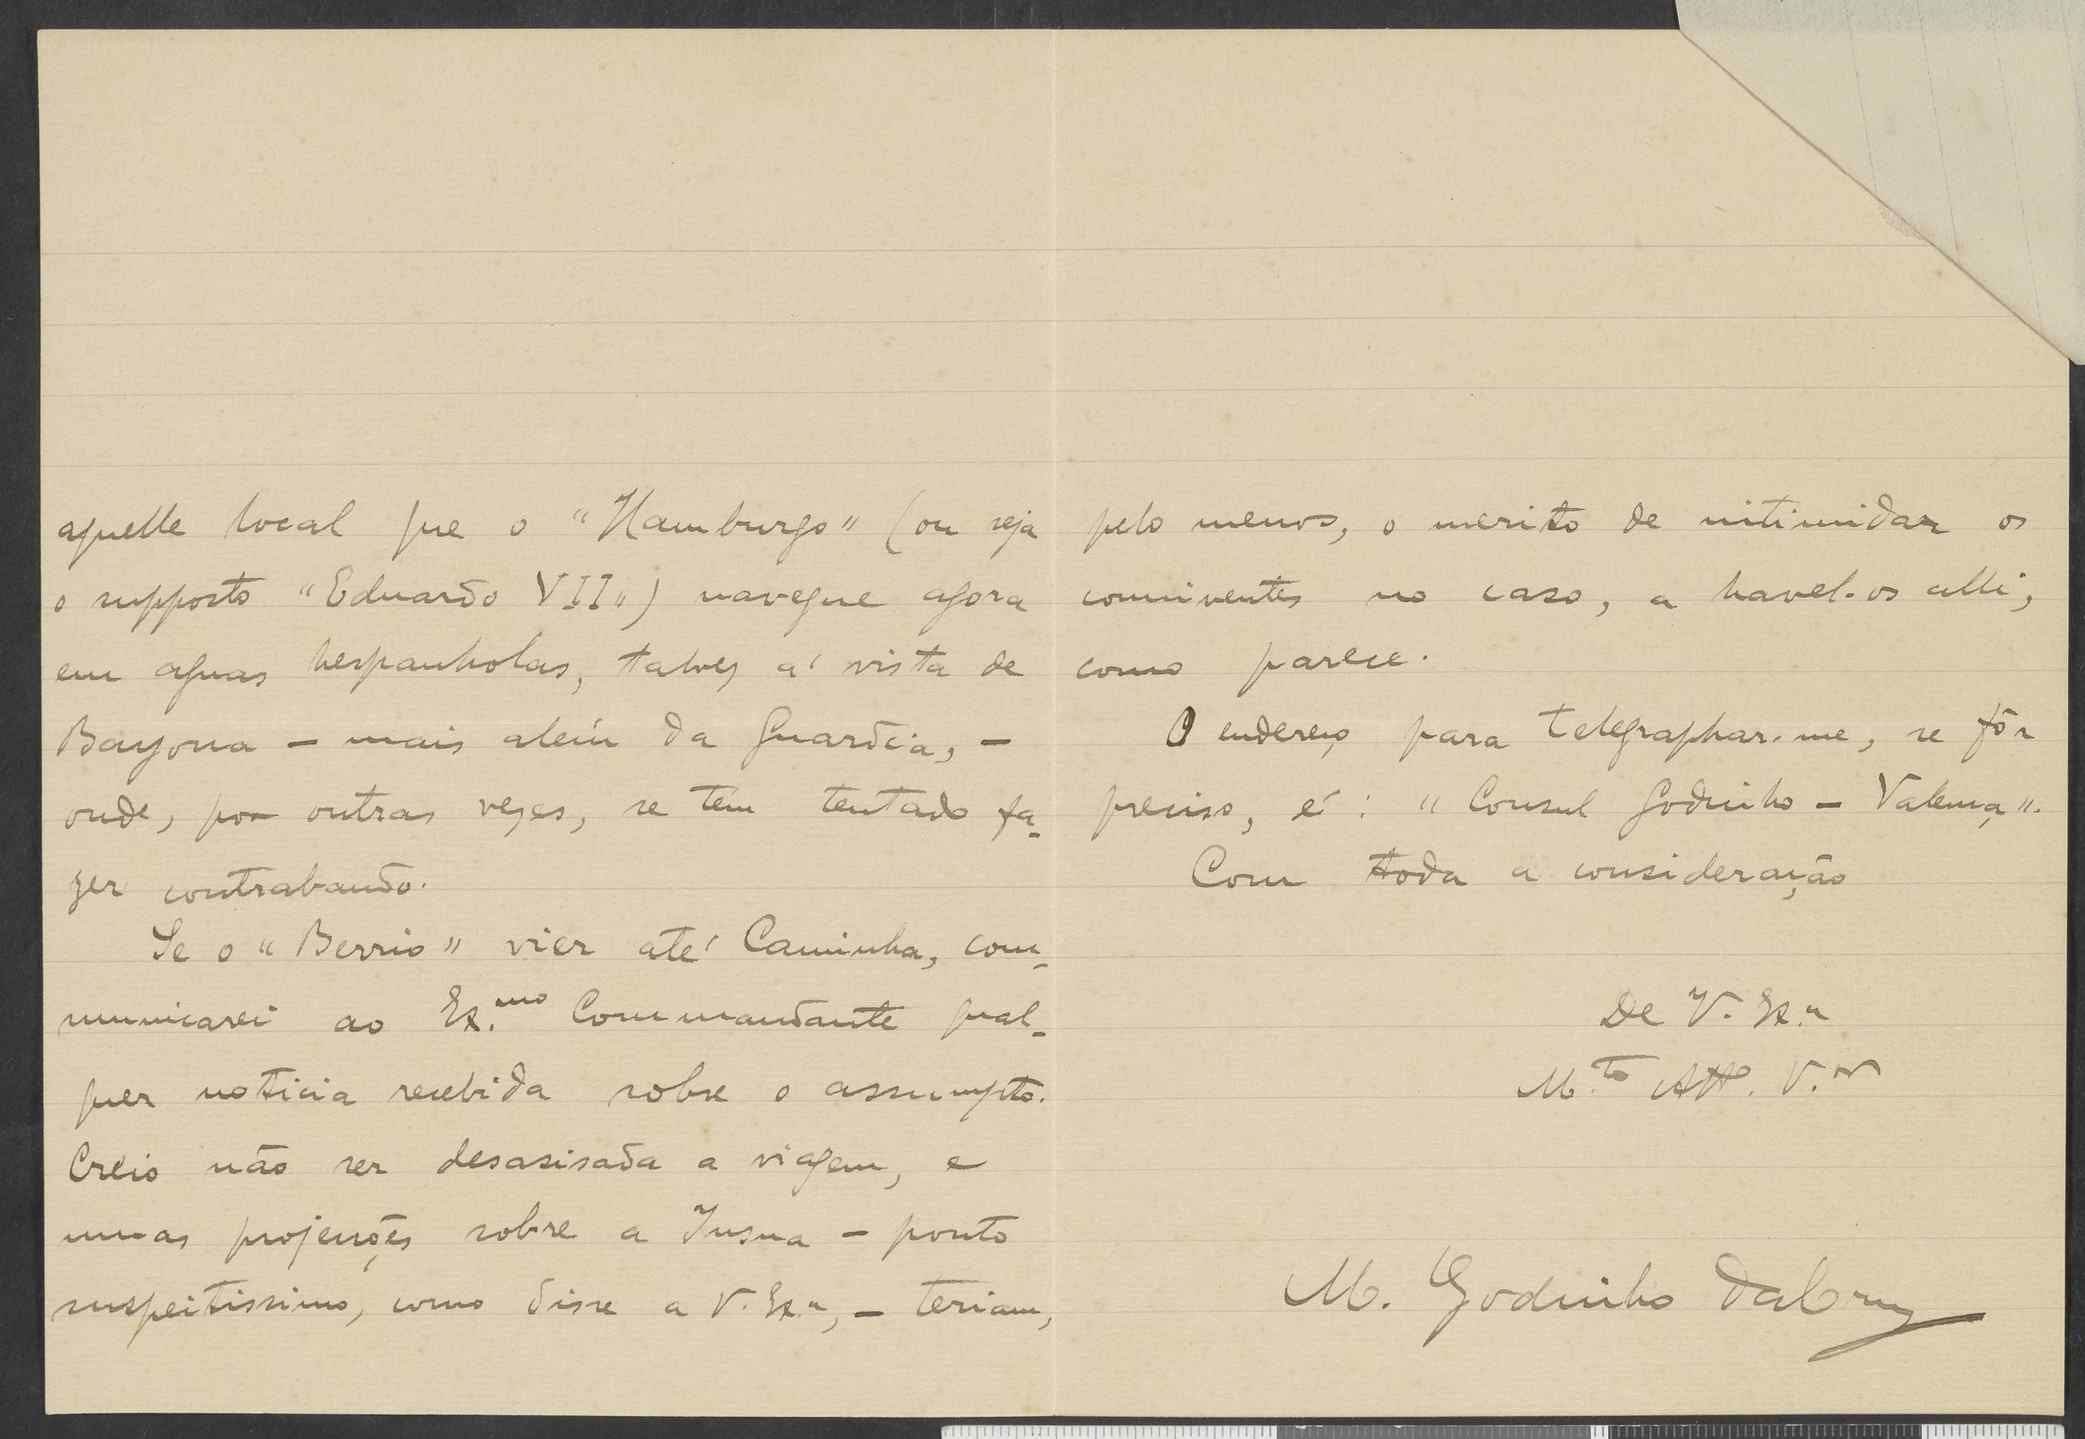 aquelle local que o "Hamburgo" (ou seja
o supposto "Eduardo VII") navegue agora
em aguas hespanholas, talvez á vista de
Bayona – mais além da Guardia, –
onde, por outras vezes, se tem tentado fa-
zer contrabando.
Se o "Berrio" vier até Caminha, com-
municarei ao Ex.mo Commandante qual-
quer noticia recebida sobre o assumpto.
Creio não ser desasisada a viagem, e
umas projecções sobre a Insua – ponto
suspeitissimo, como disse a V. Ex.a, – teriam,
pelo menos, o merito de intimidar os
conniventes no caso, a havel-os alli,
como parece.
O endereço para telegraphar-me, se fôr
preciso, é: "Consul Godinho – Valença".
Com toda a consideração
De V. Ex.a
M.to Att.o V.or
M. Godinho da Cruz